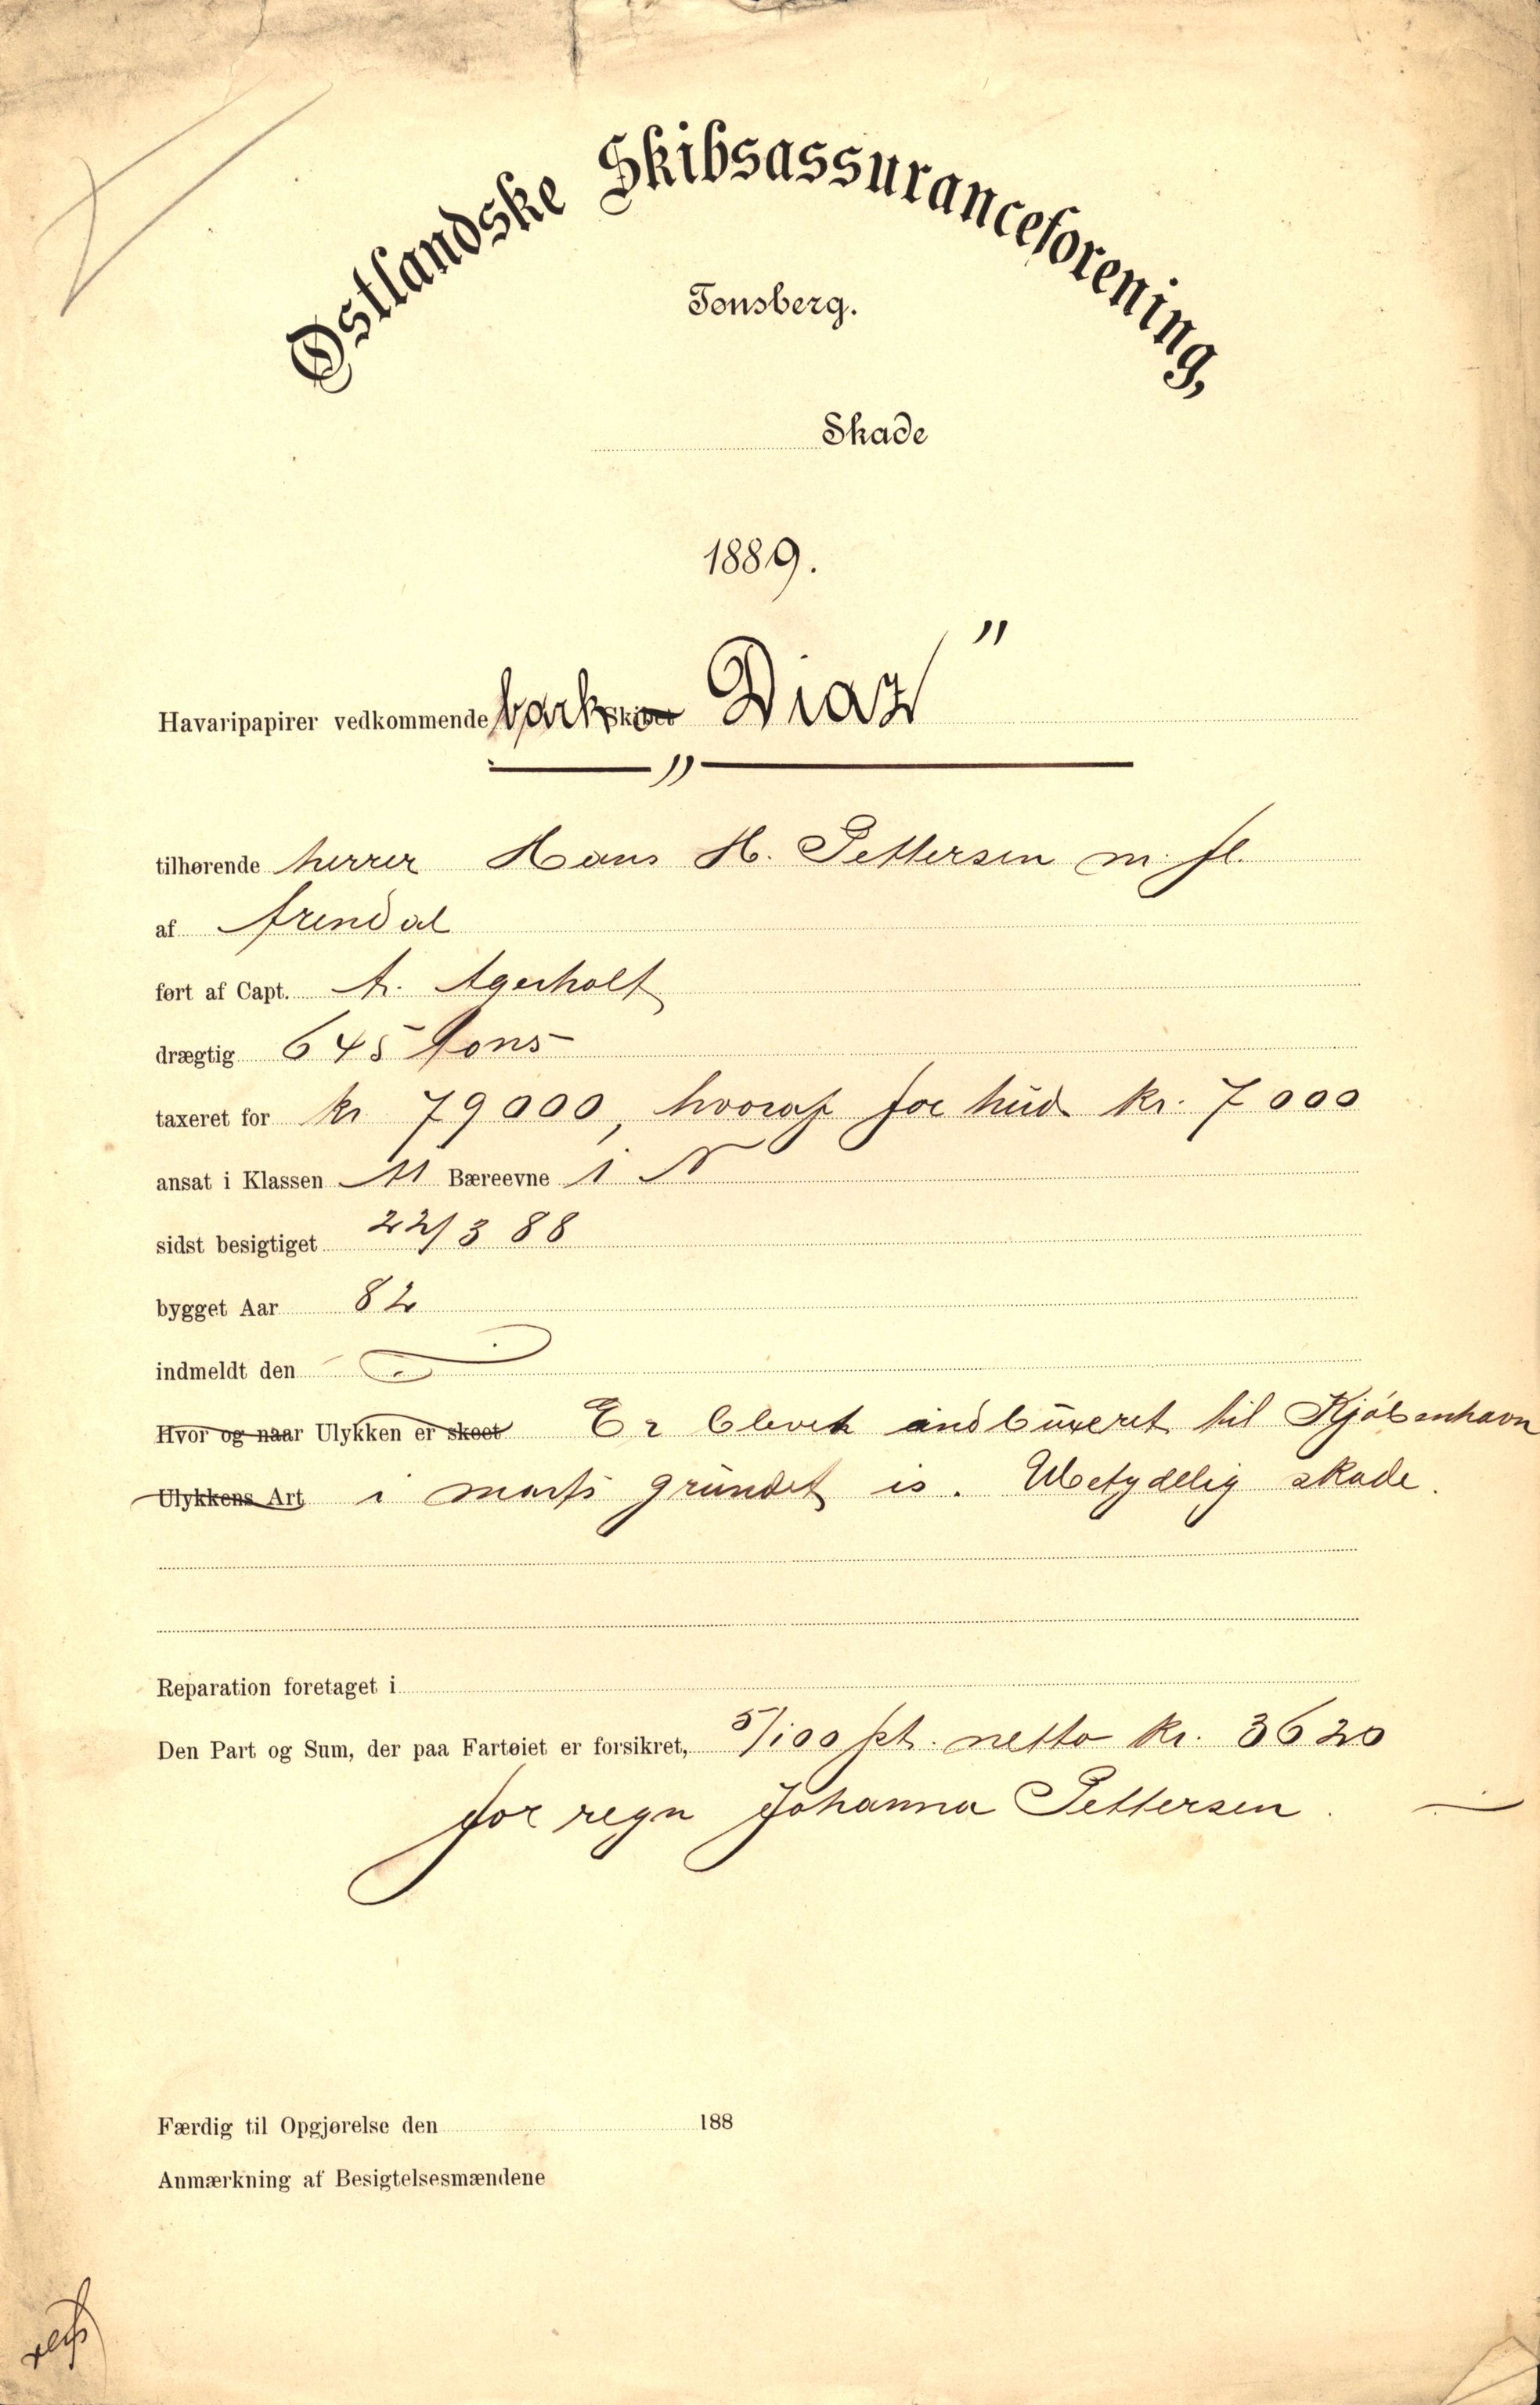 Østlandske Skibsassuranceforening,
Tønsberg.
Skade
1889.
Havaripapirer vedkommende bark Skibet „Diaz”
tilhørende herrer Hans H. Pettersen m. fl.
af Arendal
ført af Capt. A. Agerholt
drægtig 645 Tons
taxeret for kr 79000, hvoraf for hud kr. 7000
ansat i Klassen A1 Bæreevne 1 N
sidst besigtiget 22/3 88
bygget Aar 82
indmeldt den
Hvor og naar Ulykken er skeet Er blevet indbuxeret til Kjøbenhavn
Ulykkens Art i marts grundet is. Ubetydelig skade.
Reparation foretaget i
Den Part og Sum, der paa Fartøiet er forsikret, 5/100 pt. netto kr. 3620
for regn Johanna Pettersen.
Færdig til Opgjørelse den 188
Anmærkning af Besigtelsesmændene